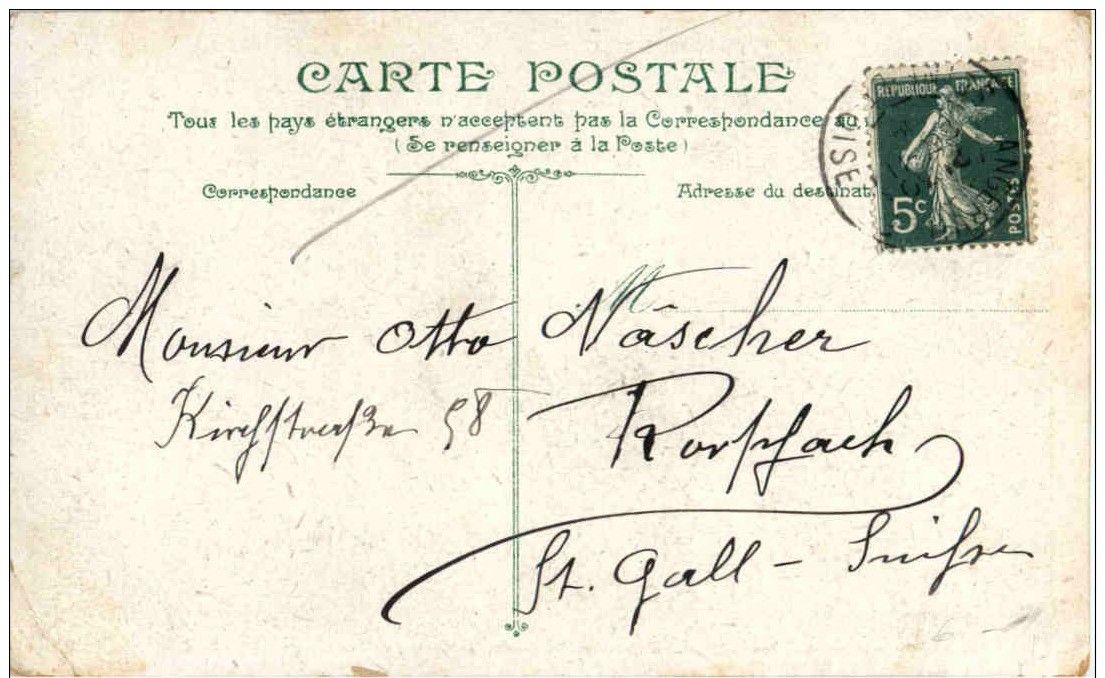 CARTE POSTALE
Tous les pays étrangers n'acceptent pas la Correspondance au
(Se renseigner à la Poste)
Correspondance
Adresse du destinat
RÉPUBLIQUE FRANÇAISE
5c
POSTES
OISE
Monsieur Otto Näscher
Kirchstraße 58
Rorschach
St. Gall – Suisse